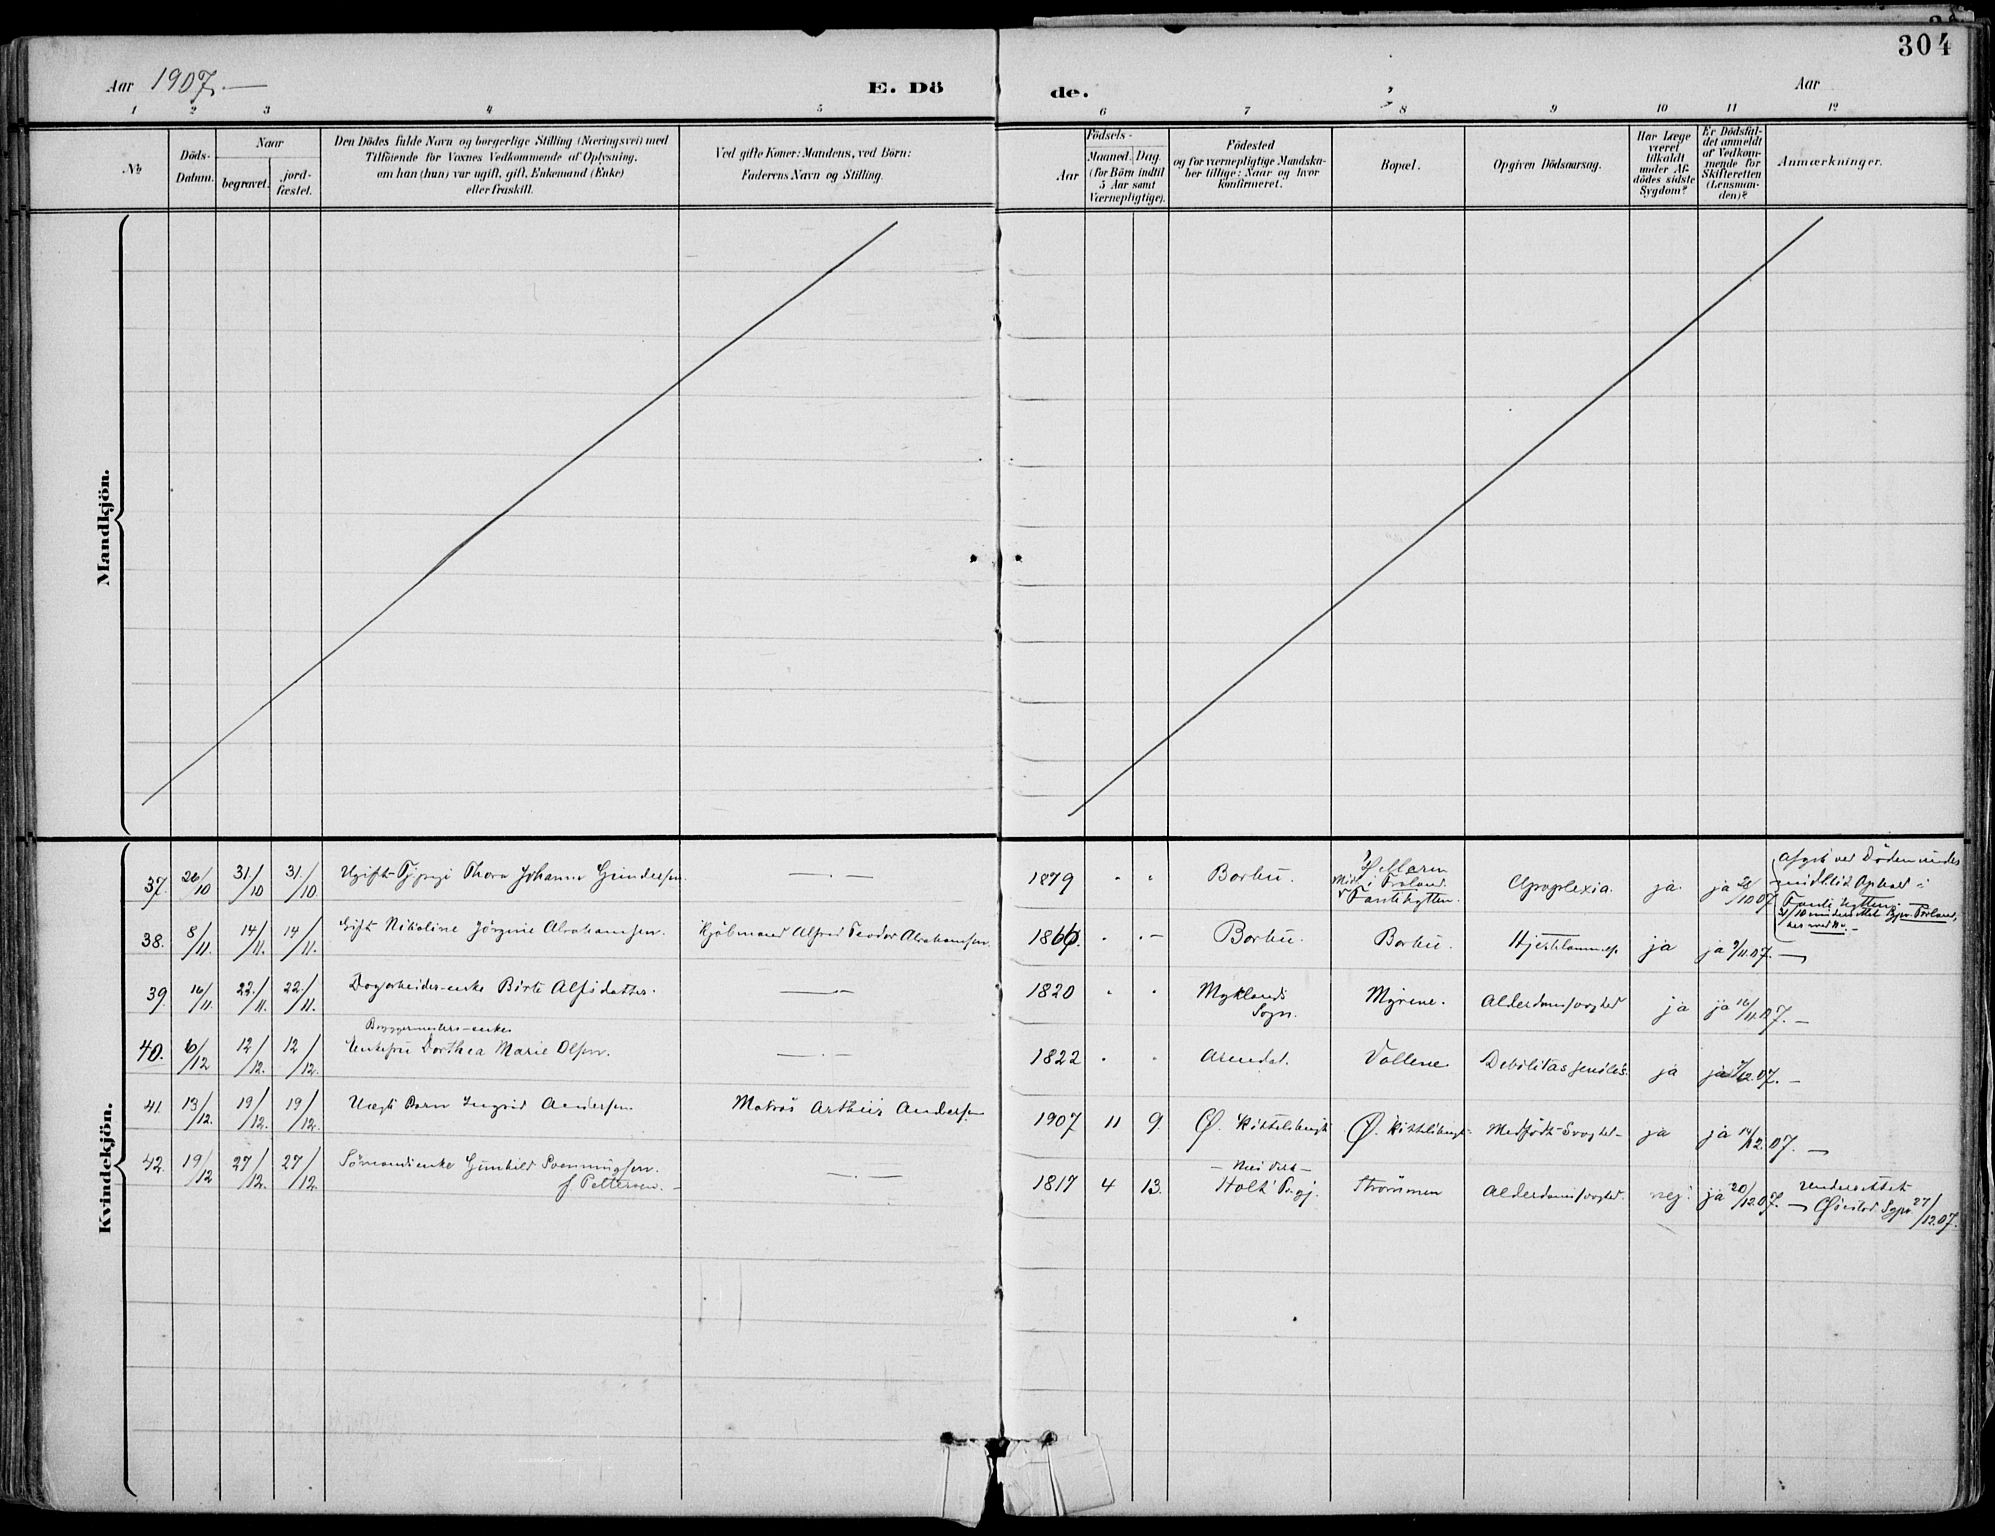 304
Aar 1907.—
E. Dö
de.
Aar
1 2 3 4 5 6 7 8 9 10 11 12
No
Döds-
Datum.
Naar
begravet.
jord-
fæstet.
Den Dödes fulde Navn og borgerlige Stilling (Næringsvei) med
Tilföiende for Voxnes Vedkommende af Oplysning,
om han (hun) var ugift, gift, Enkemand (Enke)
eller fraskilt.
Ved gifte Koner: Mandens, ved Börn:
Faderens Navn og Stilling.
Födsels-
Aar
Maaned. Dag.
(for Börn indtil
5 Aar samt
Værnepligtige).
Födested
og for værnepligtige Mandska-
ber tillige: Naar og hvor
konfirmeret.
Bopæl.
Opgiven Dödsaarsag.
Har Læge
været
tilkaldt
under Af-
dödes sidste
Sygdom?
Er Dödsfal-
det anmeldt
af Vedkom-
mende for
Skifteretten
(Lensman-
den)?
Anmærkninger.
Mandkjön.
Kvindekjön.
37. 26/10 31/10 31/10 Ugift Thora Johanne Gundersen —..— 1879 " " Barbu. Froland Apoplexia. ja. ja 28/10 07
38. 8/11. 14/11. 14/11. Gift Nikoline Jörgine Abrahamsen. Kjöbmand Alfred Teodor Abrahamsen. 1866 . .— Barbu. Barbu. ja ja 9/11.07. —
39. 16/11. 22/11. 22/11. Dagarbeider-enke Birte Alfsdatter. —..— 1820 " " Myklands
Sogn. Myrene. Alderdomssvaghed ja ja 16/11.07. —
Byggermesters-enke
40. 6/12 12/12. 12/12. Enkefru Dorthea Marie Olsen. —..— 1822 " " Arendal. Vollene Debilitas senilis. ja ja 7/12.07. —
41. 13/12. 19/12. 19/12. Barn Ingrid Andersen Matros Arthur Andersen 1907 11 9. Ø. Kittelsbugt Ø. Kittelsbugt Medfödt Svaghed— ja ja 14/12.07. —
42. 19/12 27/12. 27/12. Sömandsenke Gunhild Svenningsen.
f. Pettersen. — —..— 1817 4 13. Holt Prgj. Strömmen Alderdomssvaghed. nej. ja 20/12.07. Underrettet
— Öiestad Sgpr. 27/12.07.